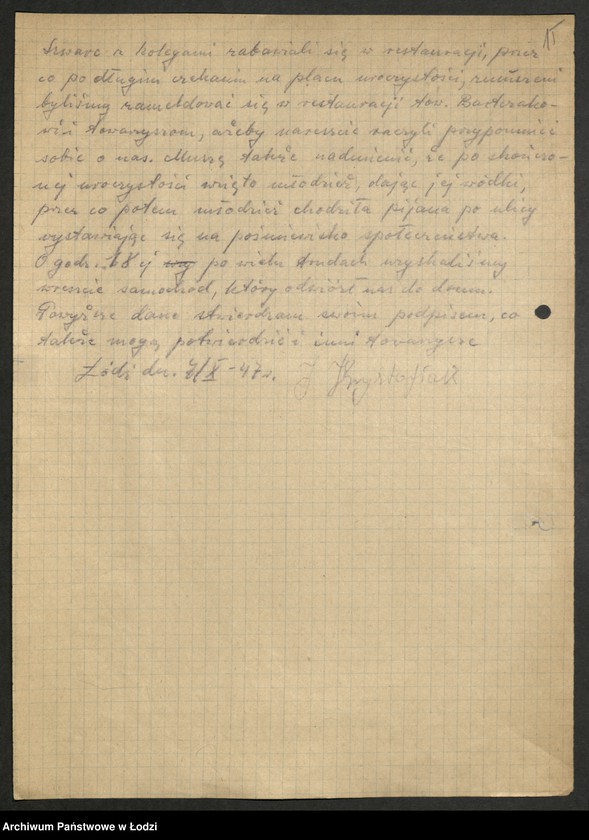 15
Szwarc z kolegami zabawiali się w restauracji, przez
co po długim czekaniu na placu uroczystości, zmuszeni
byliśmy zameldować się w restauracji tow.
towarzyszom, ażeby nareszcie raczyli przypomnieć
sobie o nas. Muszę także nadmienić, że po skończo-
nej uroczystości wzięto młodzież, dając jej wódki,
przez co potem młodzież chodziła pijana po ulicy
wystawiając się na pośmiewisko społeczeństwa.
O godz. 18ej po wielu trudach uzyskaliśmy
wreszcie samochód, który odwiózł nas do domu.
Powyższe dane stwierdzam swoim podpisem, co
także mogą potwierdzić i inni towarzysze
Łódź dn. 7/X-47r.
Archiwum Państwowe w Łodzi